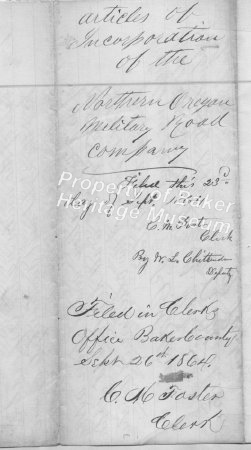 articles of
Incorporation
of the
Northern Oregon
Military Road
company
Filed this 23rd
day of Sept.
C. M. Foster
Clerk
By W. L. Chittenden
Deputy
Property of Baker
Heritage Museum
Filed in Clerks
Office Baker County
Sept 26th 1864.
C. M. Foster
Clerk